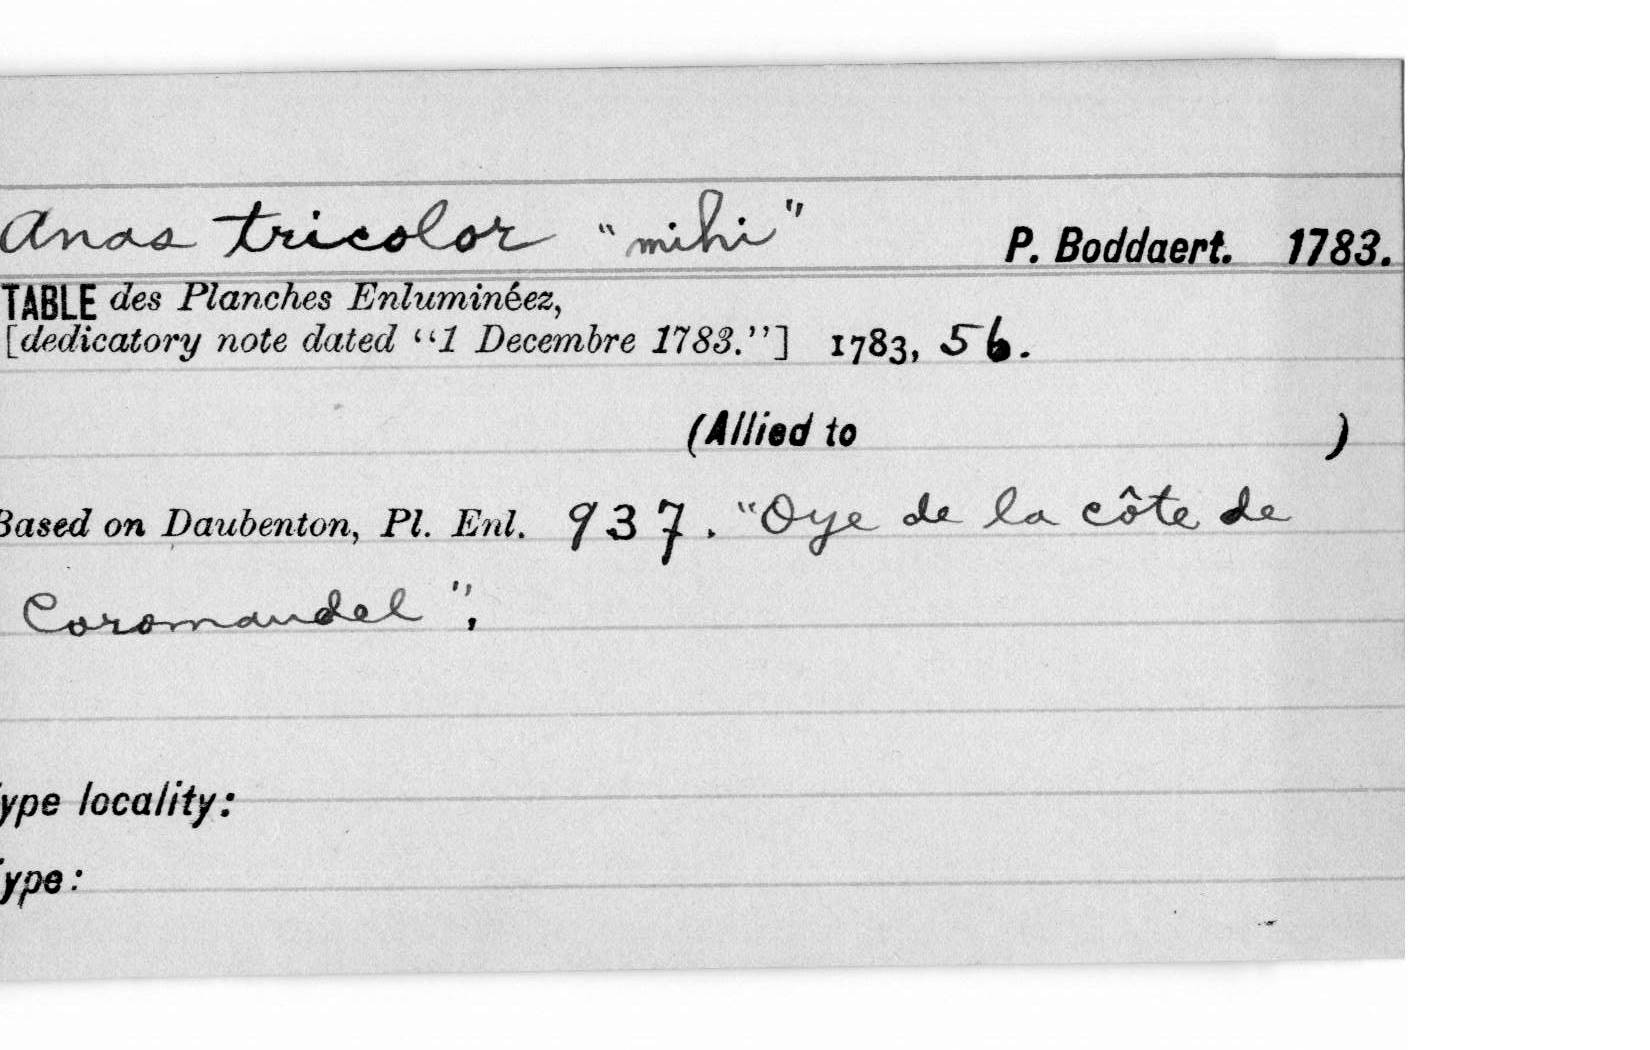 Anas tricolor "mihi" P. Boddaert. 1783.
TABLE des Planches Enluminéez,
[dedicatory note dated "1 Decembre 1783."] 1783, 56.
(Allied to )
Based on Daubenton, Pl. Enl. 937. "Oye de la côte de
Coromandel".
ype locality:
ype: